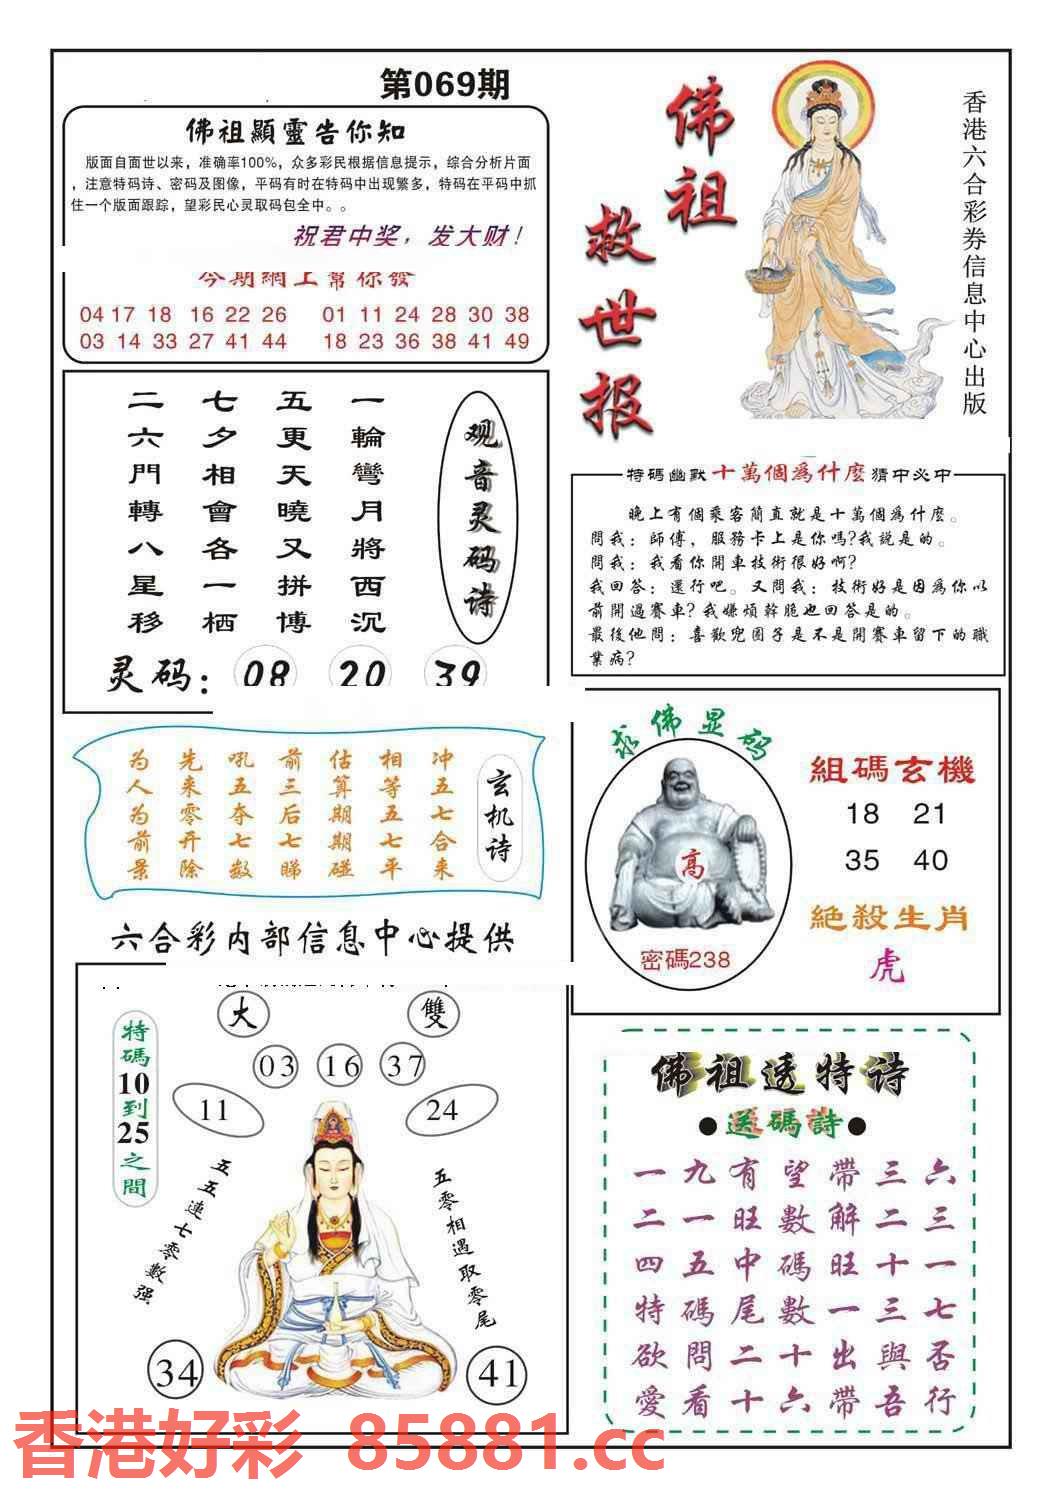 第069期
佛祖顯靈告你知
版面自面世以来，准确率100%，众多彩民根据信息提示，综合分析片面
，注意特码诗、密码及图像，平码有时在特码中出现繁多，特码在平码中抓
住一个版面跟踪，望彩民心灵取码包全中。。
祝君中奖，发大财！
今期網上幫你發
04 17 18 16 22 26 01 11 24 28 30 38
03 14 33 27 41 44 18 23 36 38 41 49
佛祖
救世报
香港六合彩券信息中心出版
观音灵码诗
一輪彎月將西沉
五更天曉又拼博
七夕相會各一栖
二六門轉八星移
灵码：08 20 39
特碼幽默十萬個爲什麼猜中必中
晚上有個乘客簡直就是十萬個爲什麼。
問我：師傅，服務卡上是你嗎?我説是的。
問我：我看你開車技術很好啊?
我回答：還行吧。又問我：技術好是因爲你以
前開過賽車?我嫌煩幹脆也回答是的。
最後他問：喜歡兜圈子是不是開賽車留下的職
業病?
玄机诗
冲五七合来
相等五七平
估算期期碰
前三后七睇
吼五夺七数
先来零开除
为人为前景
求佛显码
高
密碼238
組碼玄機
18 21
35 40
絕殺生肖
虎
六合彩内部信息中心提供
大 雙
03 16 37
11 24
特碼10到25之間
五五連七零數强
五零相遇取零尾
34 41
佛祖透特诗
●送碼詩●
一九有望帶三六
二一旺數解二三
四五中碼旺十一
特碼尾數一三七
欲問二十出與否
愛看十六帶吾行
香港好彩 85881.cc